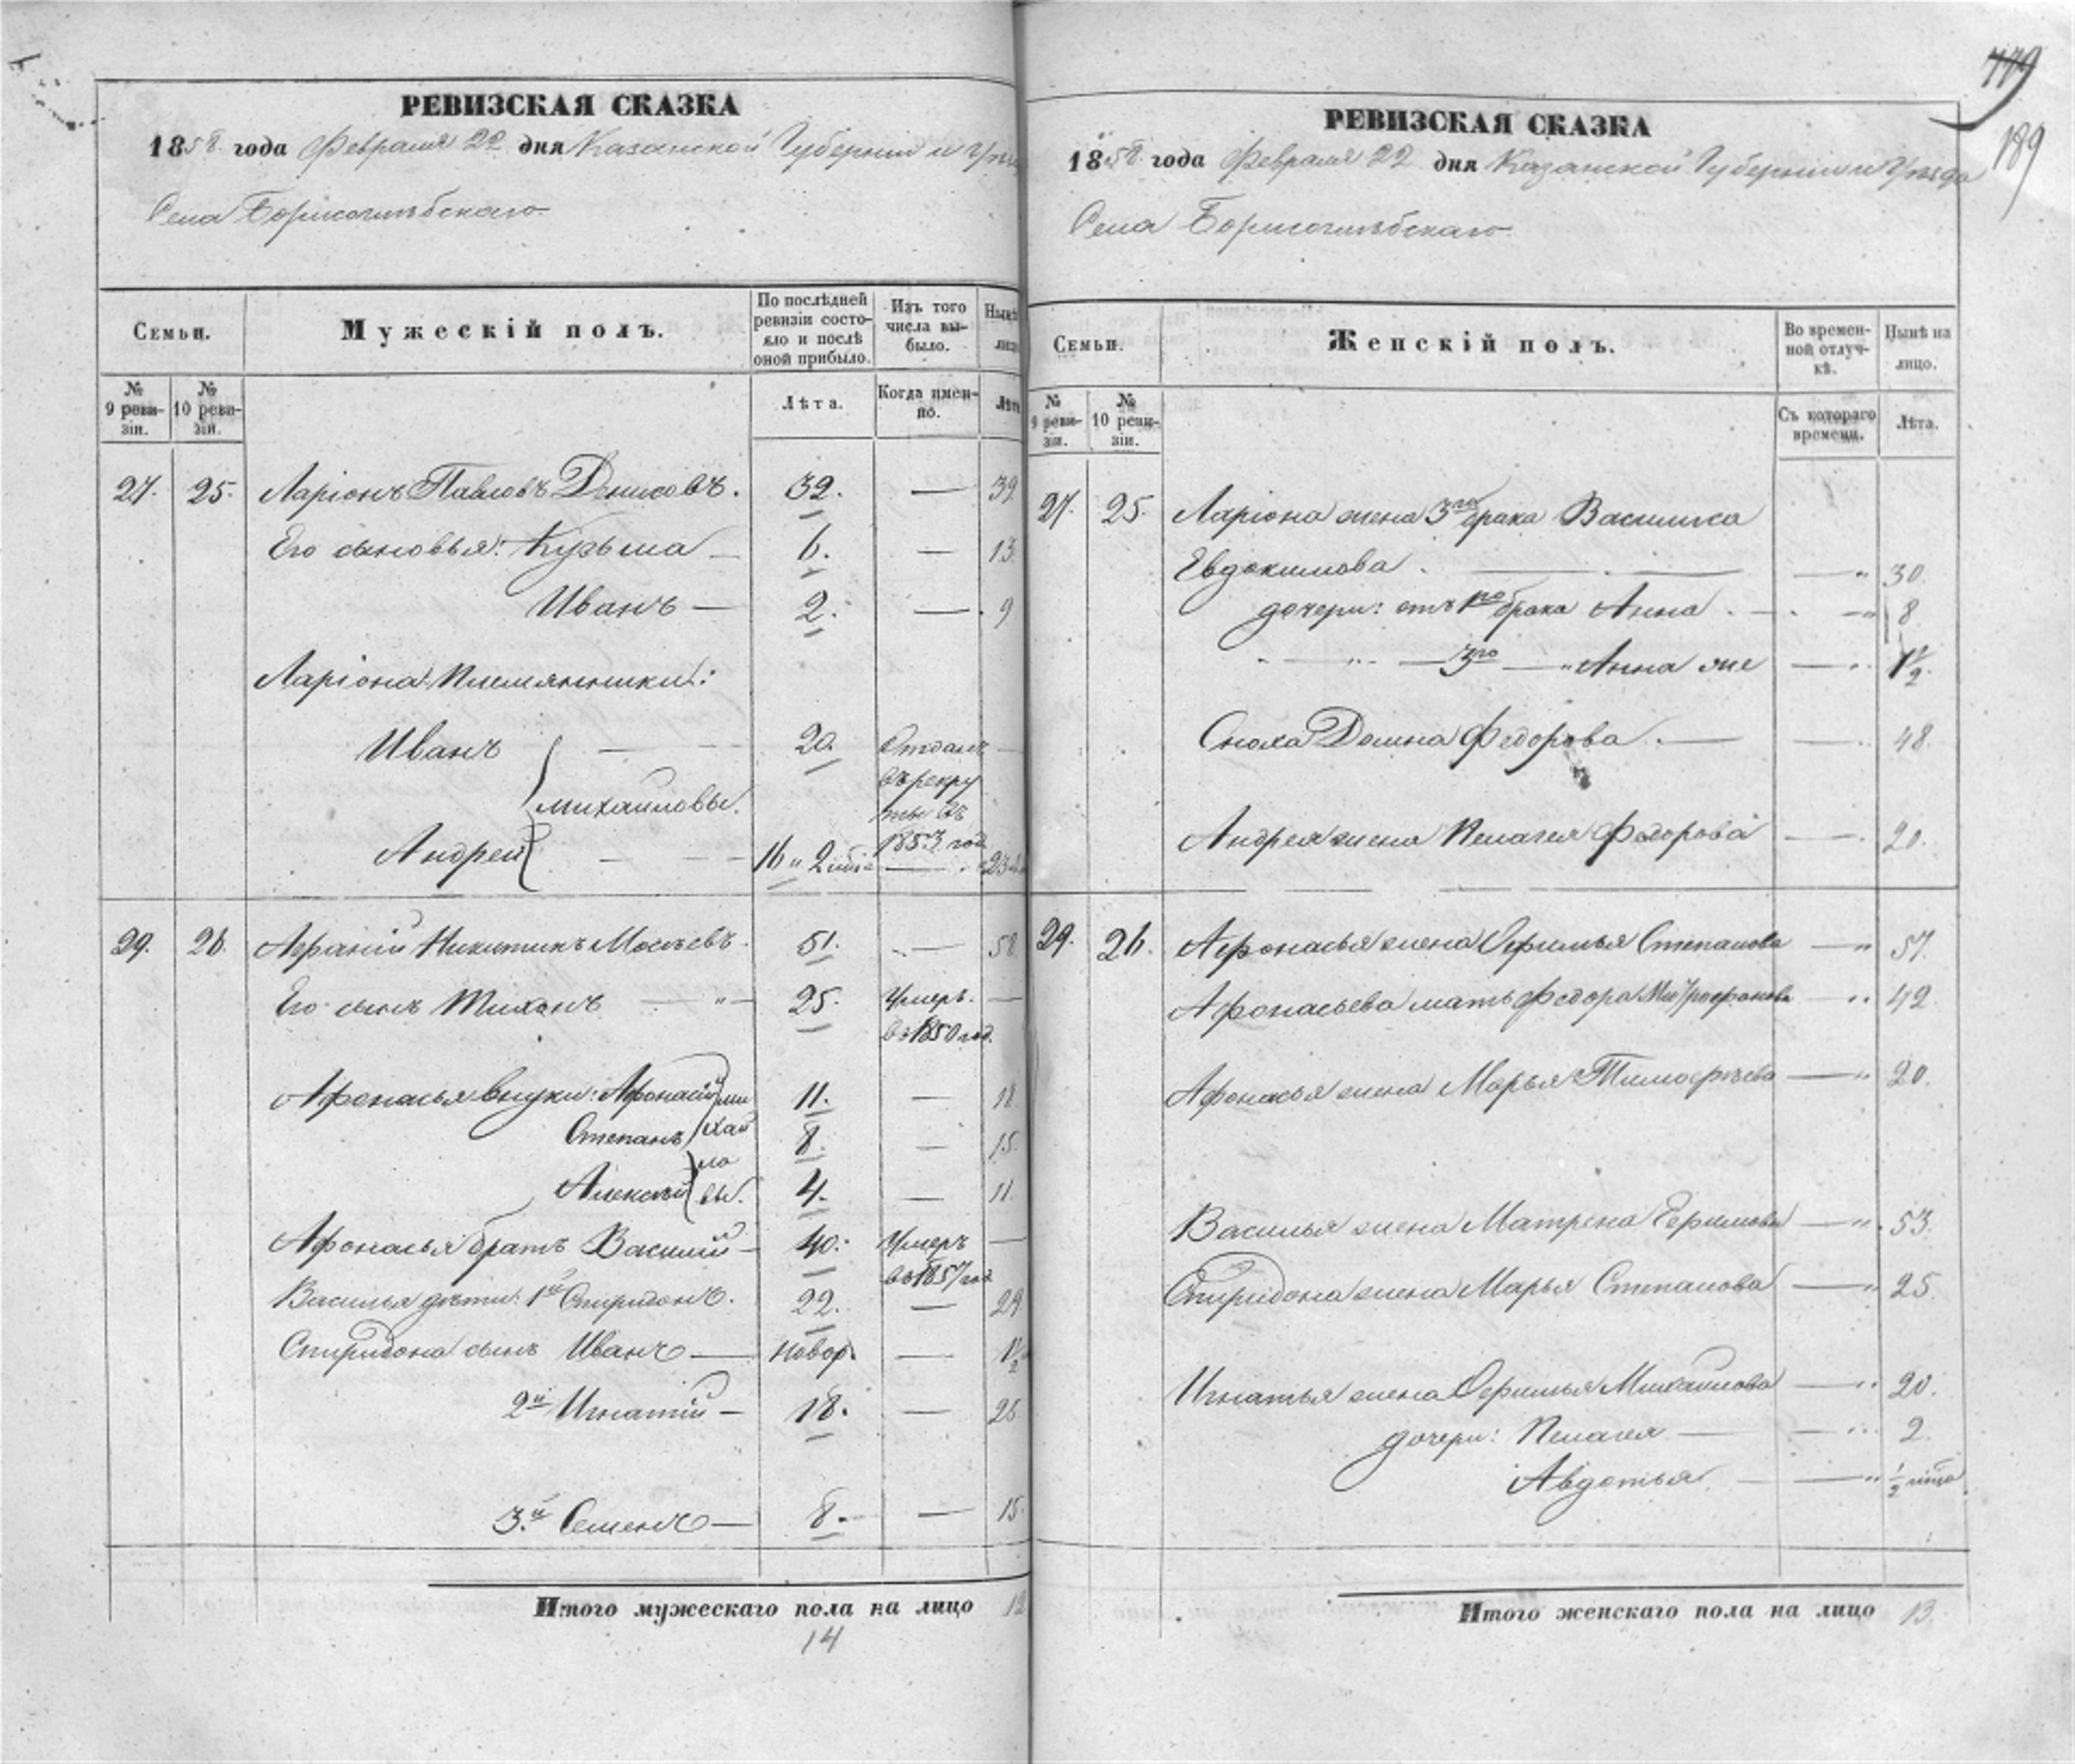 779
189
РЕВИЗСКАЯ СКАЗКА
1858 года Февраля 22 дня Казанской Губерніи и Уѣзд
Села Борисоглѣбскаго
Семьи.
Мужескій полъ.
По послѣдней ревизіи состояло и послѣ оной прибыло.
Изъ того числа выбыло.
Нынѣ лицо
№ 9 ревизіи.
№ 10 ревизіи.
Лѣта.
Когда именно.
Лѣта
27. 25. Ларіонъ Павловъ Денисовъ. 32. — 39
Его сыновья: Кузьма — 6. — 13
Иванъ — 2. — 9
Ларіона племянники:
Иванъ — 20. Отданъ —
въ рекру
михайловы. ты въ
1853 год
Андрей — 16 " 2 — 23
29. 26. Никитинъ Мосѣевъ. 51. — 58
Его сынъ Тихонъ — " — 25. Умеръ. —
въ 1850 год.
Афонасья внуки: Афонасій 11. — 18
Степанъ михай 8. — 15.
Алексѣй ловы. 4. — 11.
Афонасья братъ Василій — 40. Умеръ —
въ 1857 год
Василья дѣти: 1й Спиридонъ. 22. — 29
Спиридона сынъ Иванъ — новор. — 1 1/2
2й Игнатій — 18. — 25
3.й Семенъ — 8. — 15.
Итого мужескаго пола на лицо 12
14
РЕВИЗСКАЯ СКАЗКА
1858 года Февраля 22 дня Казанской Губерніи и Уѣзда
Села Борисоглѣбскаго
Семьи.
Женскій полъ.
Во временной отлучкѣ.
Нынѣ на лицо.
№ 9 ревизіи.
№ 10 ревизіи.
Съ котораго времени.
Лѣта.
27. 25. Ларіона жена 3го брака Василиса
Евдокимова. — — " 30
дочери: отъ 1го брака Анна. — — " 8
" — " — 3го — " Анна же — " 1 1/2
Сноха Домна Федорова. — — 48.
Андрея жена Пелагея Федорова — 20.
29. 26. Афонасья жена Офимья Степанова — " 57.
Афонасьева мать Федора Митрофанова — " 42
Афонасья жена Марья Тимофѣева — " 20.
Василья жена Матрена Ефимова — " 53.
Спиридона жена Марья Степанова — " 25.
Игнатья жена Офимья Михайлова — " 20.
дочери: Пелагея — — " 2.
Авдотья. — — " 1/2
Итого женскаго пола на лицо 13